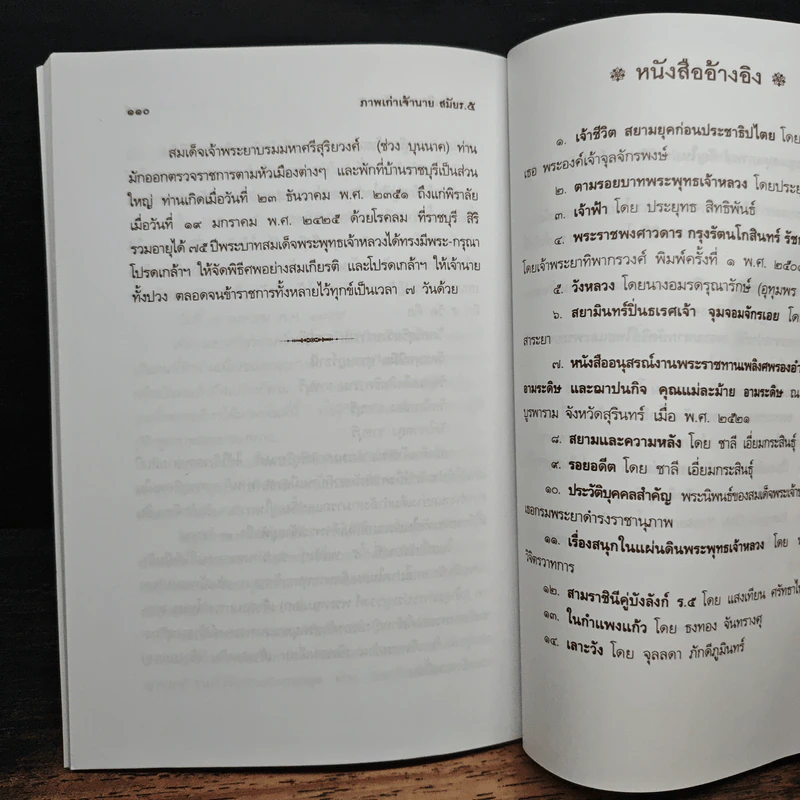 ๑๑๐
ภาพเก่าเจ้านาย สมัยร.๕
สมเด็จเจ้าพระยาบรมมหาศรีสุริยวงศ์ (ช่วง บุนนาค) ท่าน
มักออกตรวจราชการตามหัวเมืองต่างๆ และพักที่บ้านราชบุรีเป็นส่วน
ใหญ่ ท่านเกิดเมื่อวันที่ ๒๓ ธันวาคม พ.ศ. ๒๓๕๑ ถึงแก่พิราลัย
เมื่อวันที่ ๑๙ มกราคม พ.ศ. ๒๔๒๕ ด้วยโรคลม ที่ราชบุรี สิริ
รวมอายุได้ ๗๕ ปีพระบาทสมเด็จพระพุทธเจ้าหลวงได้ทรงมีพระ-กรุณา
โปรดเกล้าฯ ให้จัดพิธีศพอย่างสมเกียรติ และโปรดเกล้าฯ ให้เจ้านาย
ทั้งปวง ตลอดจนข้าราชการทั้งหลายไว้ทุกข์เป็นเวลา ๗ วันด้วย
หนังสืออ้างอิง
๑. เจ้าชีวิต สยามยุคก่อนประชาธิปไตย โดย
เธอ พระองค์เจ้าจุลจักรพงษ์
๒. ตามรอยบาทพระพุทธเจ้าหลวง โดยประยุ
๓. เจ้าฟ้า โดย ประยุทธ สิทธิพันธ์
๔. พระราชพงศาวดาร กรุงรัตนโกสินทร์ รัช
โดยเจ้าพระยาทิพากรวงศ์ พิมพ์ครั้งที่ ๑ พ.ศ. ๒๕๐
๕. วังหลวง โดยนางอมรดรุณารักษ์ (อุทุมพร
๖. สยามินทร์ปิ่นธเรศเจ้า จุมจอมจักรเอย โด
สาระยา
๗. หนังสืออนุสรณ์งานพระราชทานเพลิงศพรองอำ
อามระดิษ และฌาปนกิจ คุณแม่ละม้าย อามระดิษ ณ
บูรพาราม จังหวัดสุรินทร์ เมื่อ พ.ศ. ๒๕๒๑
๘. สยามและความหลัง โดย ชาลี เอี่ยมกระสินธุ์
๙. รอยอดีต โดย ชาลี เอี่ยมกระสินธุ์
๑๐. ประวัติบุคคลสำคัญ พระนิพนธ์ของสมเด็จพระเจ้า
เธอกรมพระยาดำรงราชานุภาพ
๑๑. เรื่องสนุกในแผ่นดินพระพุทธเจ้าหลวง โดย
วิจิตรวาทการ
๑๒. สามราชินีคู่บังลังก์ ร.๕ โดย แสงเทียน ศรัทธาไท
๑๓. ในกำแพงแก้ว โดย ธงทอง จันทรางศุ
๑๔. เลาะวัง โดย จุลลดา ภักดีภูมินทร์